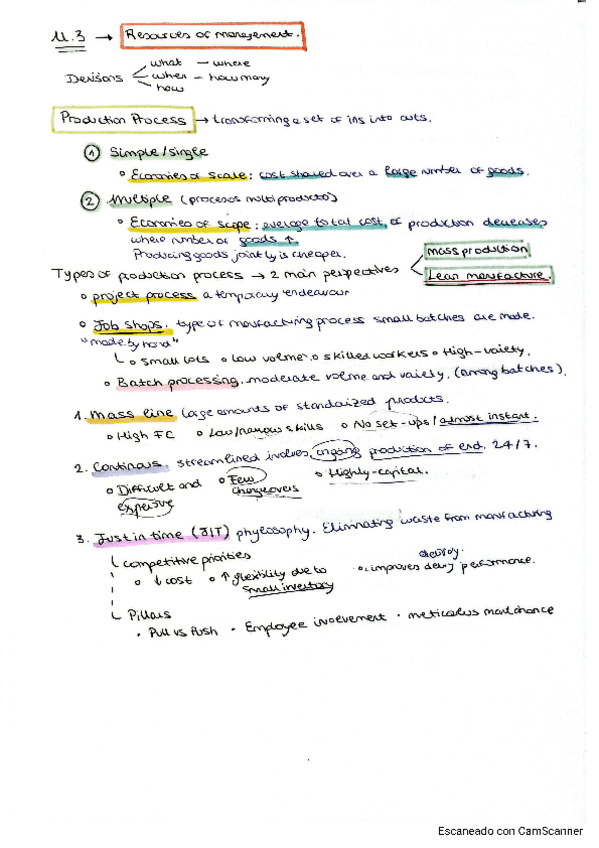 U.3 → Resources of management.
what - where
Decisions when - how many
how
Production Process → transforming a set of ins into outs.
① Simple/single
Economies of scale: cost shared over a large number of goods.
② Multiple (procesos multiproducto)
Economies of scope: average total cost of production decreases
where number of goods ↑
Producing goods jointly is cheaper.
Types of production process → 2 main perspectives
mass production
Lean manufacture.
project process a temporary endeavour
Job shops. type of manufacturing process small batches are made.
"made by hand"
small lots low volume skilled workers High-variety.
Batch processing. moderate volume and variety. (among batches).
1. Mass line large amounts of standarized products.
High FC Low/narrow skills No set-ups/almost instant.
2. Continous, streamlined involves ongoing production of end. 24/7.
Difficult and expensive Few changeovers Highly-capital.
3. Just in time (JIT) phylosophy. Eliminating waste from manufacturing
competitive priorities
↓ cost ↑ flexibility due to small inventory improves delivery performance.
Pillars
Pull vs Push Employee involvement meticulous
Escaneado con CamScanner